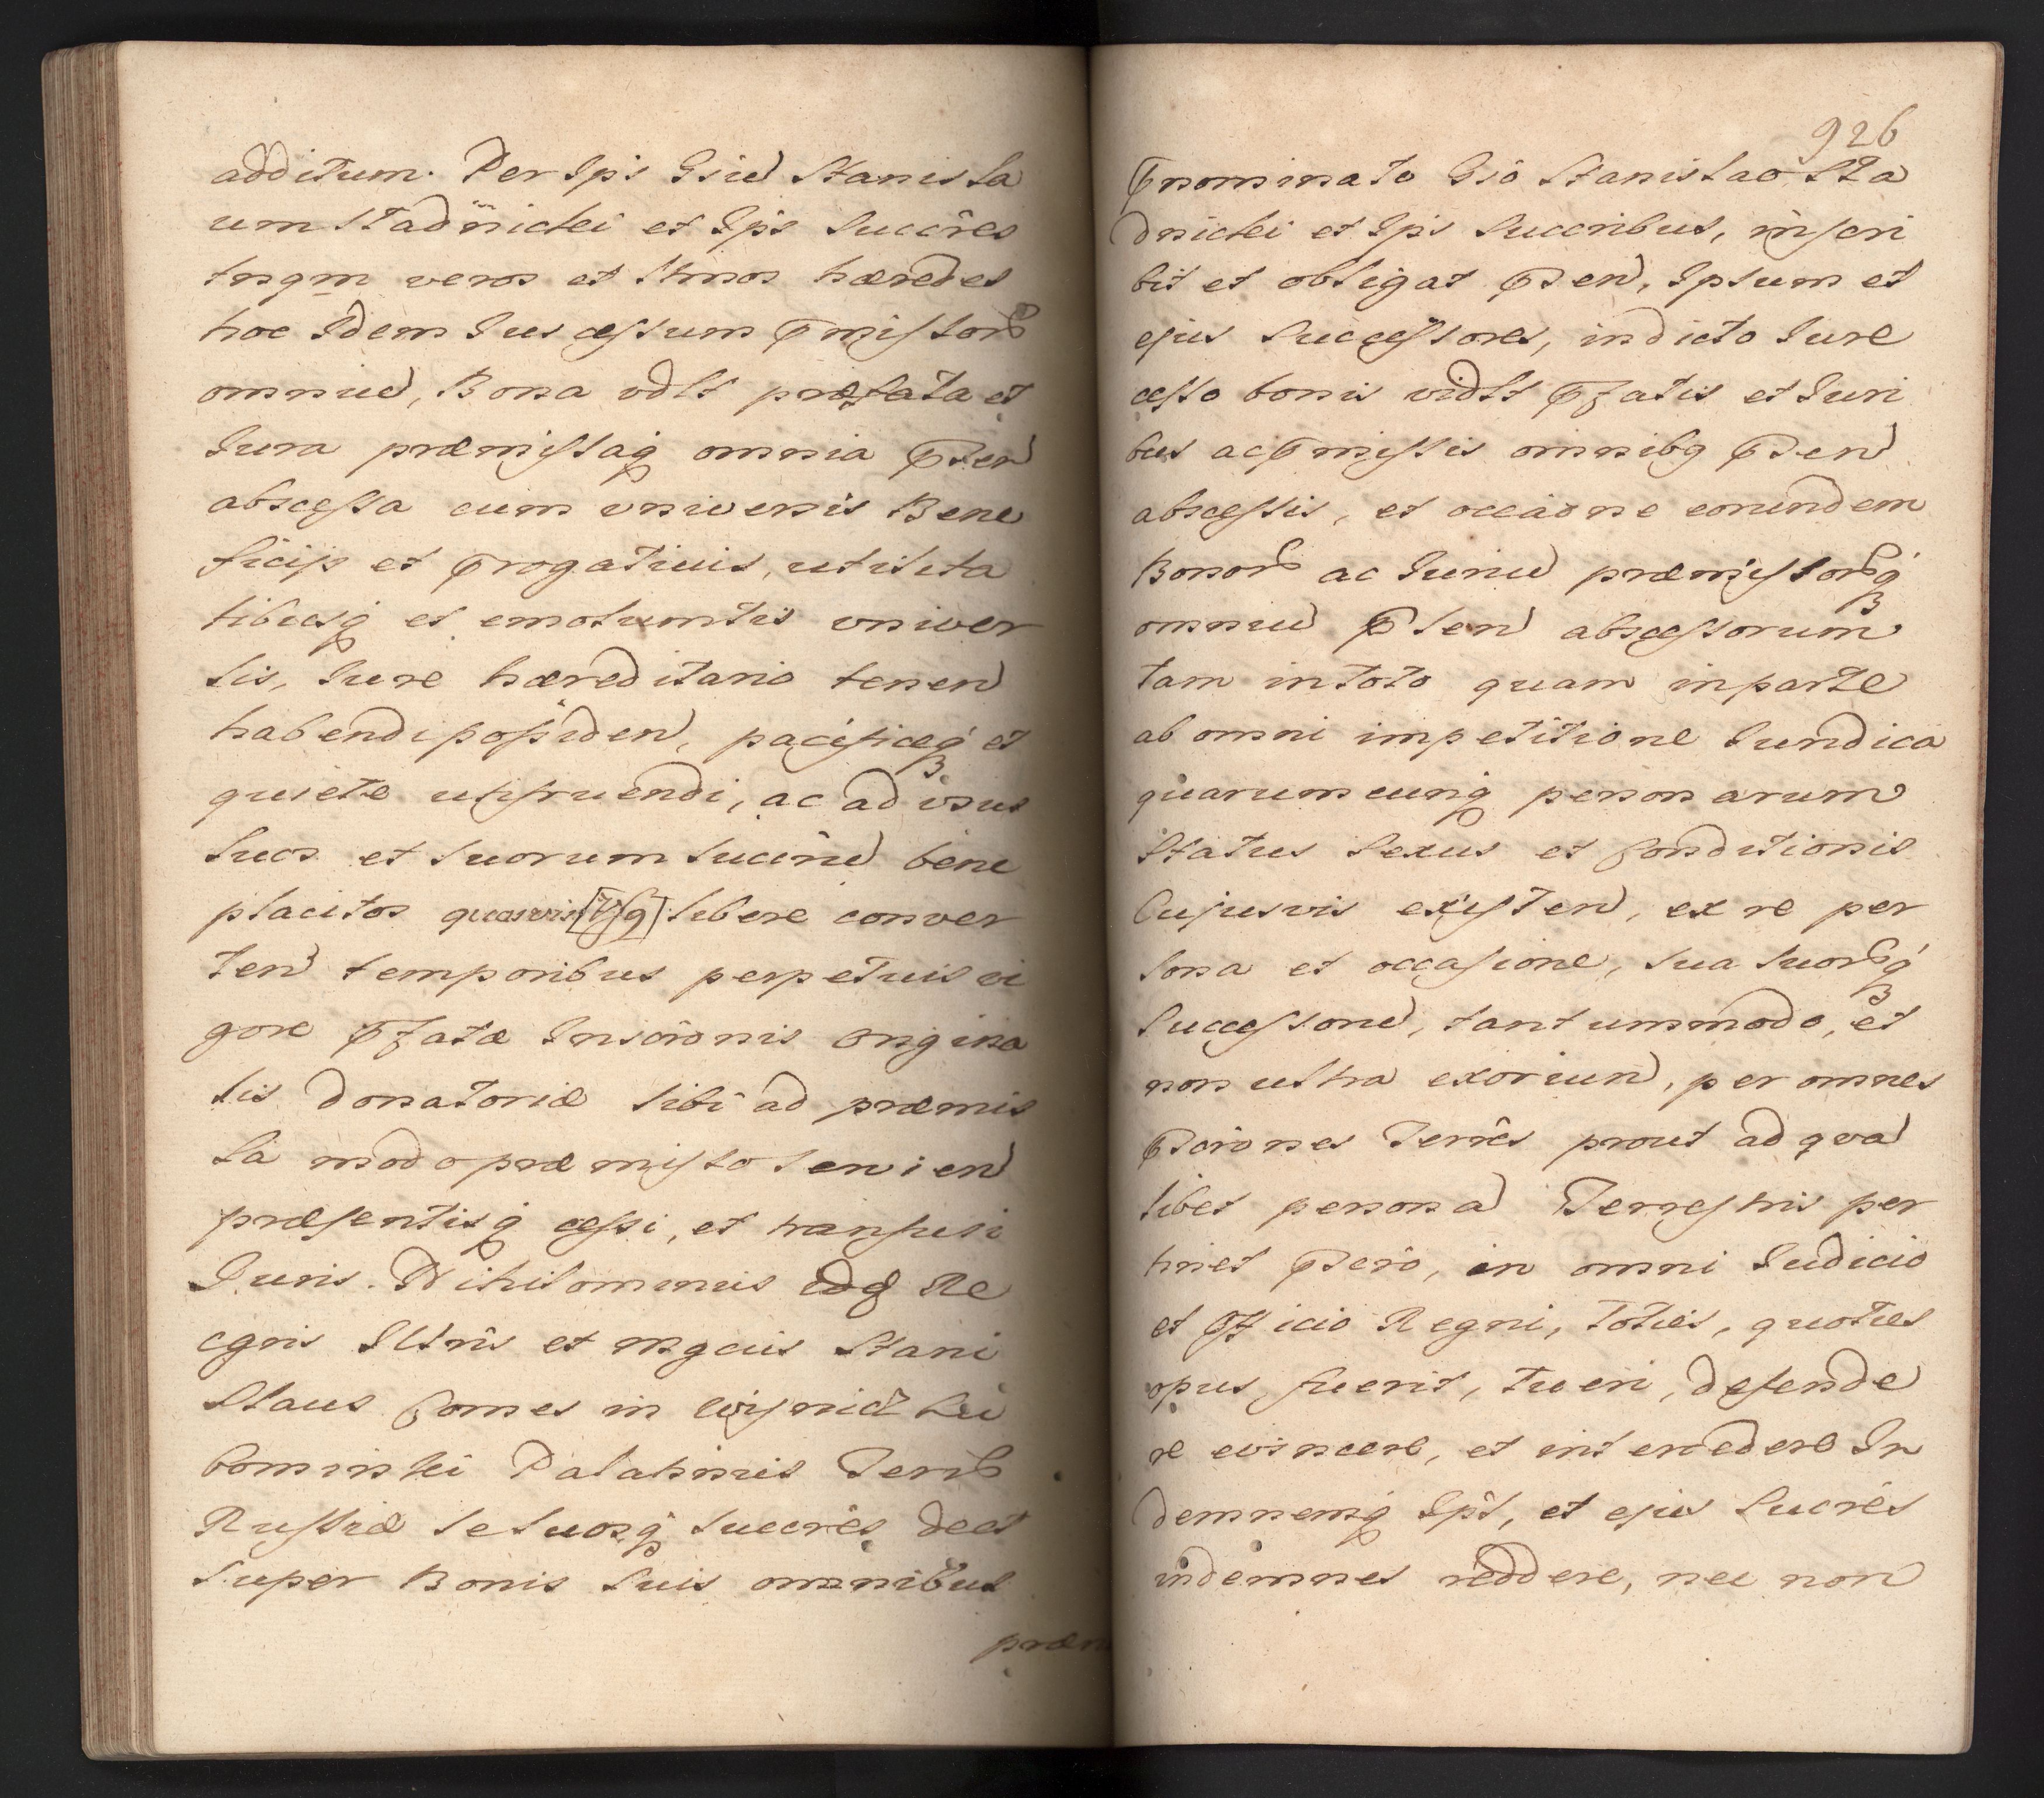 additum. Per Ips Gsiū Stanisla
um Stadnicki et Ips Succres
tnqm veros et ltmos hæredes
hoc Idem Jus cessum pmissor
omniū, Bona vdlt præfata et
Jura præmissaq omnia pten
abscessa cum universis Bene
ficijs et progativis, utilita
tibusq et emolumtis univer
sis, Jure hæreditario tenen
habendi possiden, pacificeq et
quiete utifruendi, ac ad usus
suos et suorum succrū bene
placitos quosvis libere conver
ten temporibus perpetuis vi
gore pfatæ Inscrōnis origina
lis donatoriæ sibi ad præmis
sa modo præmisso servien
præsentisq cessi, et transfusi
Juris. Nihilominus idq Re
cgnis Illris et Mgcus Stani
slaus Comes in Wisnicz Lu
bomirski Palatinus Terr
Russiæ se suosq succrēs dect
super Bonis suis omnibus
præn
926
pnominato Gsō Stanislao Sta
dnicki et Ips Succribus, inscri
bit et obligat pten, Ipsum et
ejus Successores, in dicto Jure
cesso bonis vidlt pfatis et Juri
bus ac pmissis omnibq pten
abscessis, et occāone eorundem
Bonor ac Juriū præmissorq
omniū pten abscessorum
tam in toto quam in parte
ab omni impetitione Juridica
quarumcunq personarum
Status Sexus et Conditionis
Cujusvis existen, ex re per
sona et occasione, sua suorq
Successorū, tantummodo, et
non ultra exoriun, per omnes
pscrōnes Terrēs prout ad qva
libet personā Terrestris per
tinet pscrō, in omni Judicio
et Officio Regni, toties, quoties
opus fuerit, tueri, defende
re evincere, et intercedere In
demnemq Ips, et ejus Sucrēs
indemnes reddere, nec non